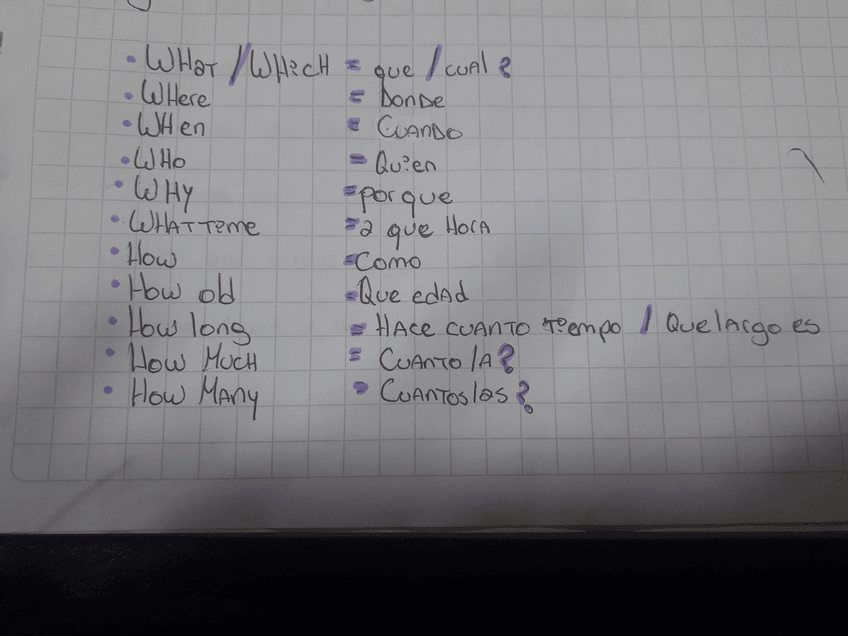 • WHaT / WHiCH = que / cual ?
• WHere = Donde
• WHen = CUANDO
• WHo = Quien
• WHY = por que
• WHAT Time = a que HorA
• How = Como
• How old = Que edAd
• How long = HACE CUANTO tiempo / Que lArgo es
• How MUCH = CUANTO/A?
• How MANy = CUANTOS/as?